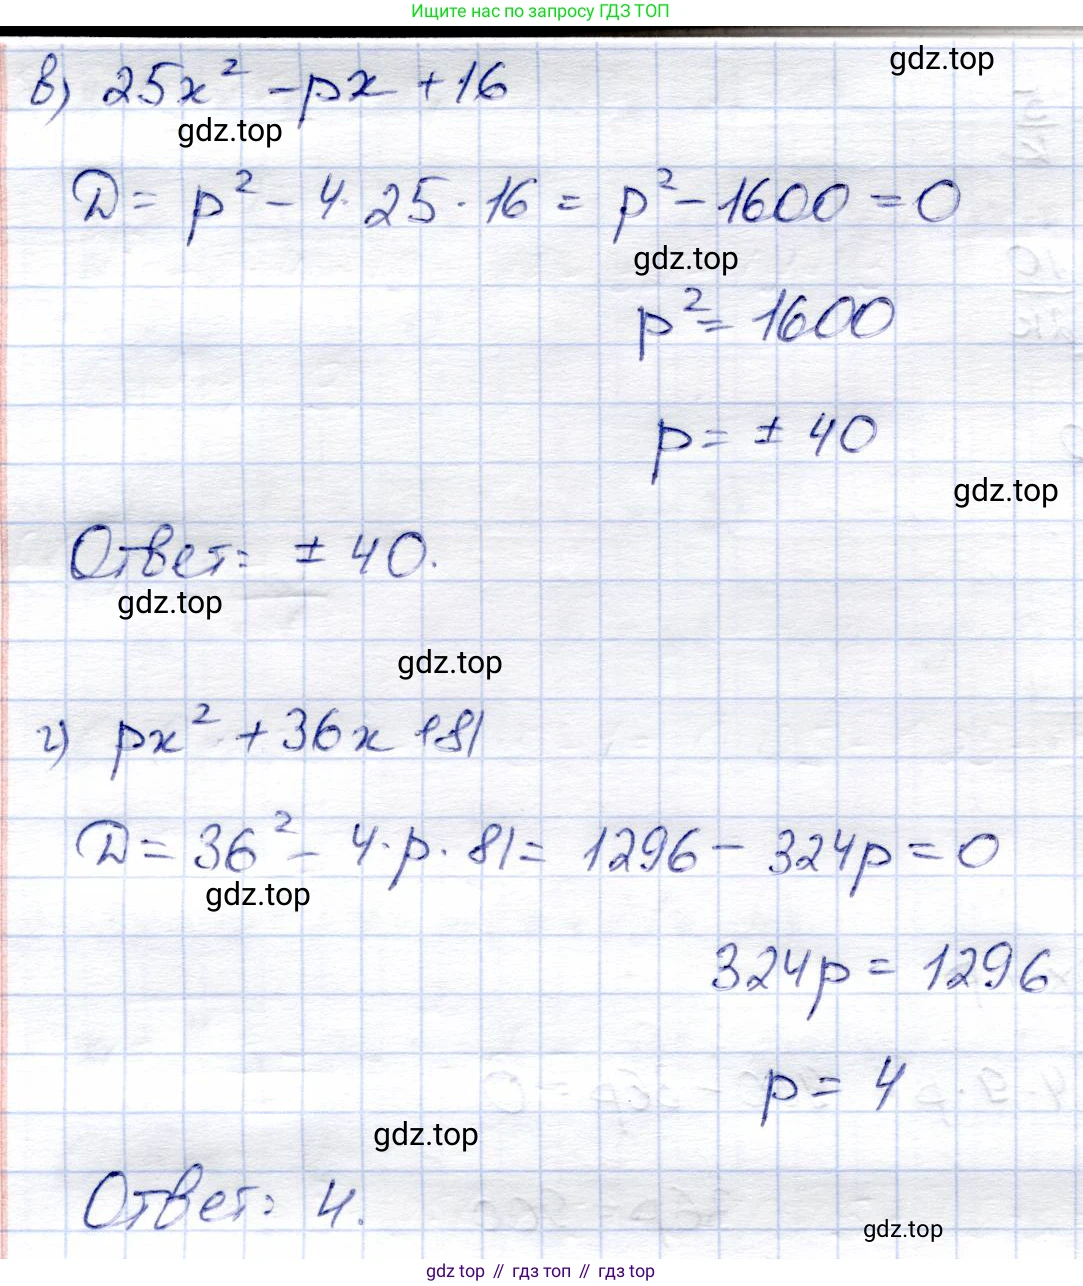 Ищите нас по запросу ГДЗ ТОП
gdz.top
в) 25x² - px + 16
gdz.top
D = p² - 4·25·16 = p² - 1600 = 0
gdz.top
p² = 1600
p = ± 40
gdz.top
Ответ: ± 40.
gdz.top
gdz.top
г) px² + 36x + 81
D = 36² - 4·p·81 = 1296 - 324p = 0
gdz.top
324p = 1296
p = 4
gdz.top
Ответ: 4.
gdz.top
gdz top // гдз топ // gdz top